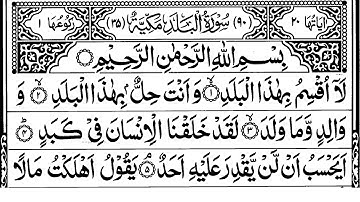 اٰیَاتُهَا ۲۰ (۹۰) سُوْرَةُ الْبَلَدِ مَكِّیَّةٌ (۳۵) رُكُوْعُهَا ۱
بِسْمِ اللّٰهِ الرَّحْمٰنِ الرَّحِیْمِ
لَاۤ اُقْسِمُ بِهٰذَا الْبَلَدِ ۙ۝۱ وَاَنْتَ حِلٌّۢ بِهٰذَا الْبَلَدِ ۙ۝۲ وَ
وَالِدٍ وَّمَا وَلَدَ ۙ۝۳ لَقَدْ خَلَقْنَا الْاِنْسَانَ فِیْ كَبَدٍ ؕ۝۴
اَیَحْسَبُ اَنْ لَّنْ یَّقْدِرَ عَلَیْهِ اَحَدٌ ۘ۝۵ یَقُوْلُ اَهْلَكْتُ مَالًا